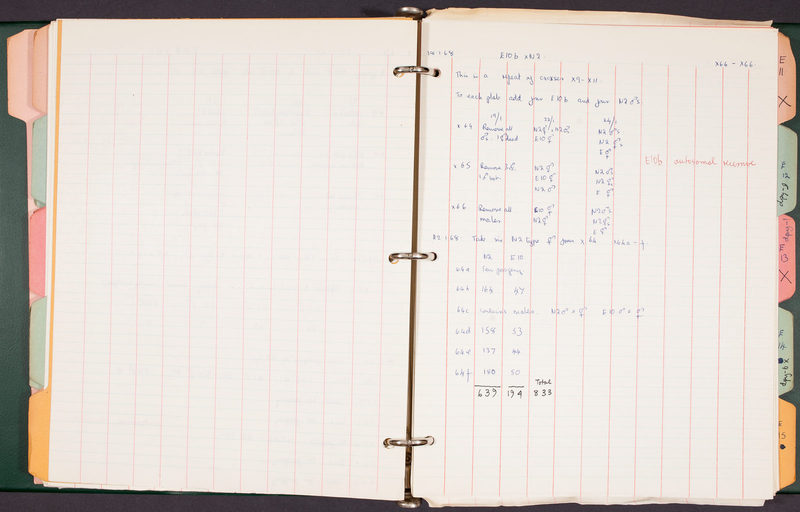 19.1.68 E10b x N2
x64 - x66
This is a repeat of crosses x9 - x11
To each plate add four E10b and four N2 ♂s
19/1 22/1 24/1
x64 Remove all N2 N2♂ N2 ♂s
dead E10 N2
E
x65 Remove N2 N2♂
E10 N2
N2♂ E
E10b autosomal recessive
x66 Remove all E10 N2♂s
males N2 N2
E
22.1.68 Take six N2 type from x 64 x64a - f
N2 E10
64a few progeny
64b 164 47
64c contains males N2 ♂ + E10 ♂ +
64d 158 53
64e 137 44
64f 180 50
Total
639 194 833
E
11
X
dpy-1
E
13
X
E
14
dpy-6 X
E
15